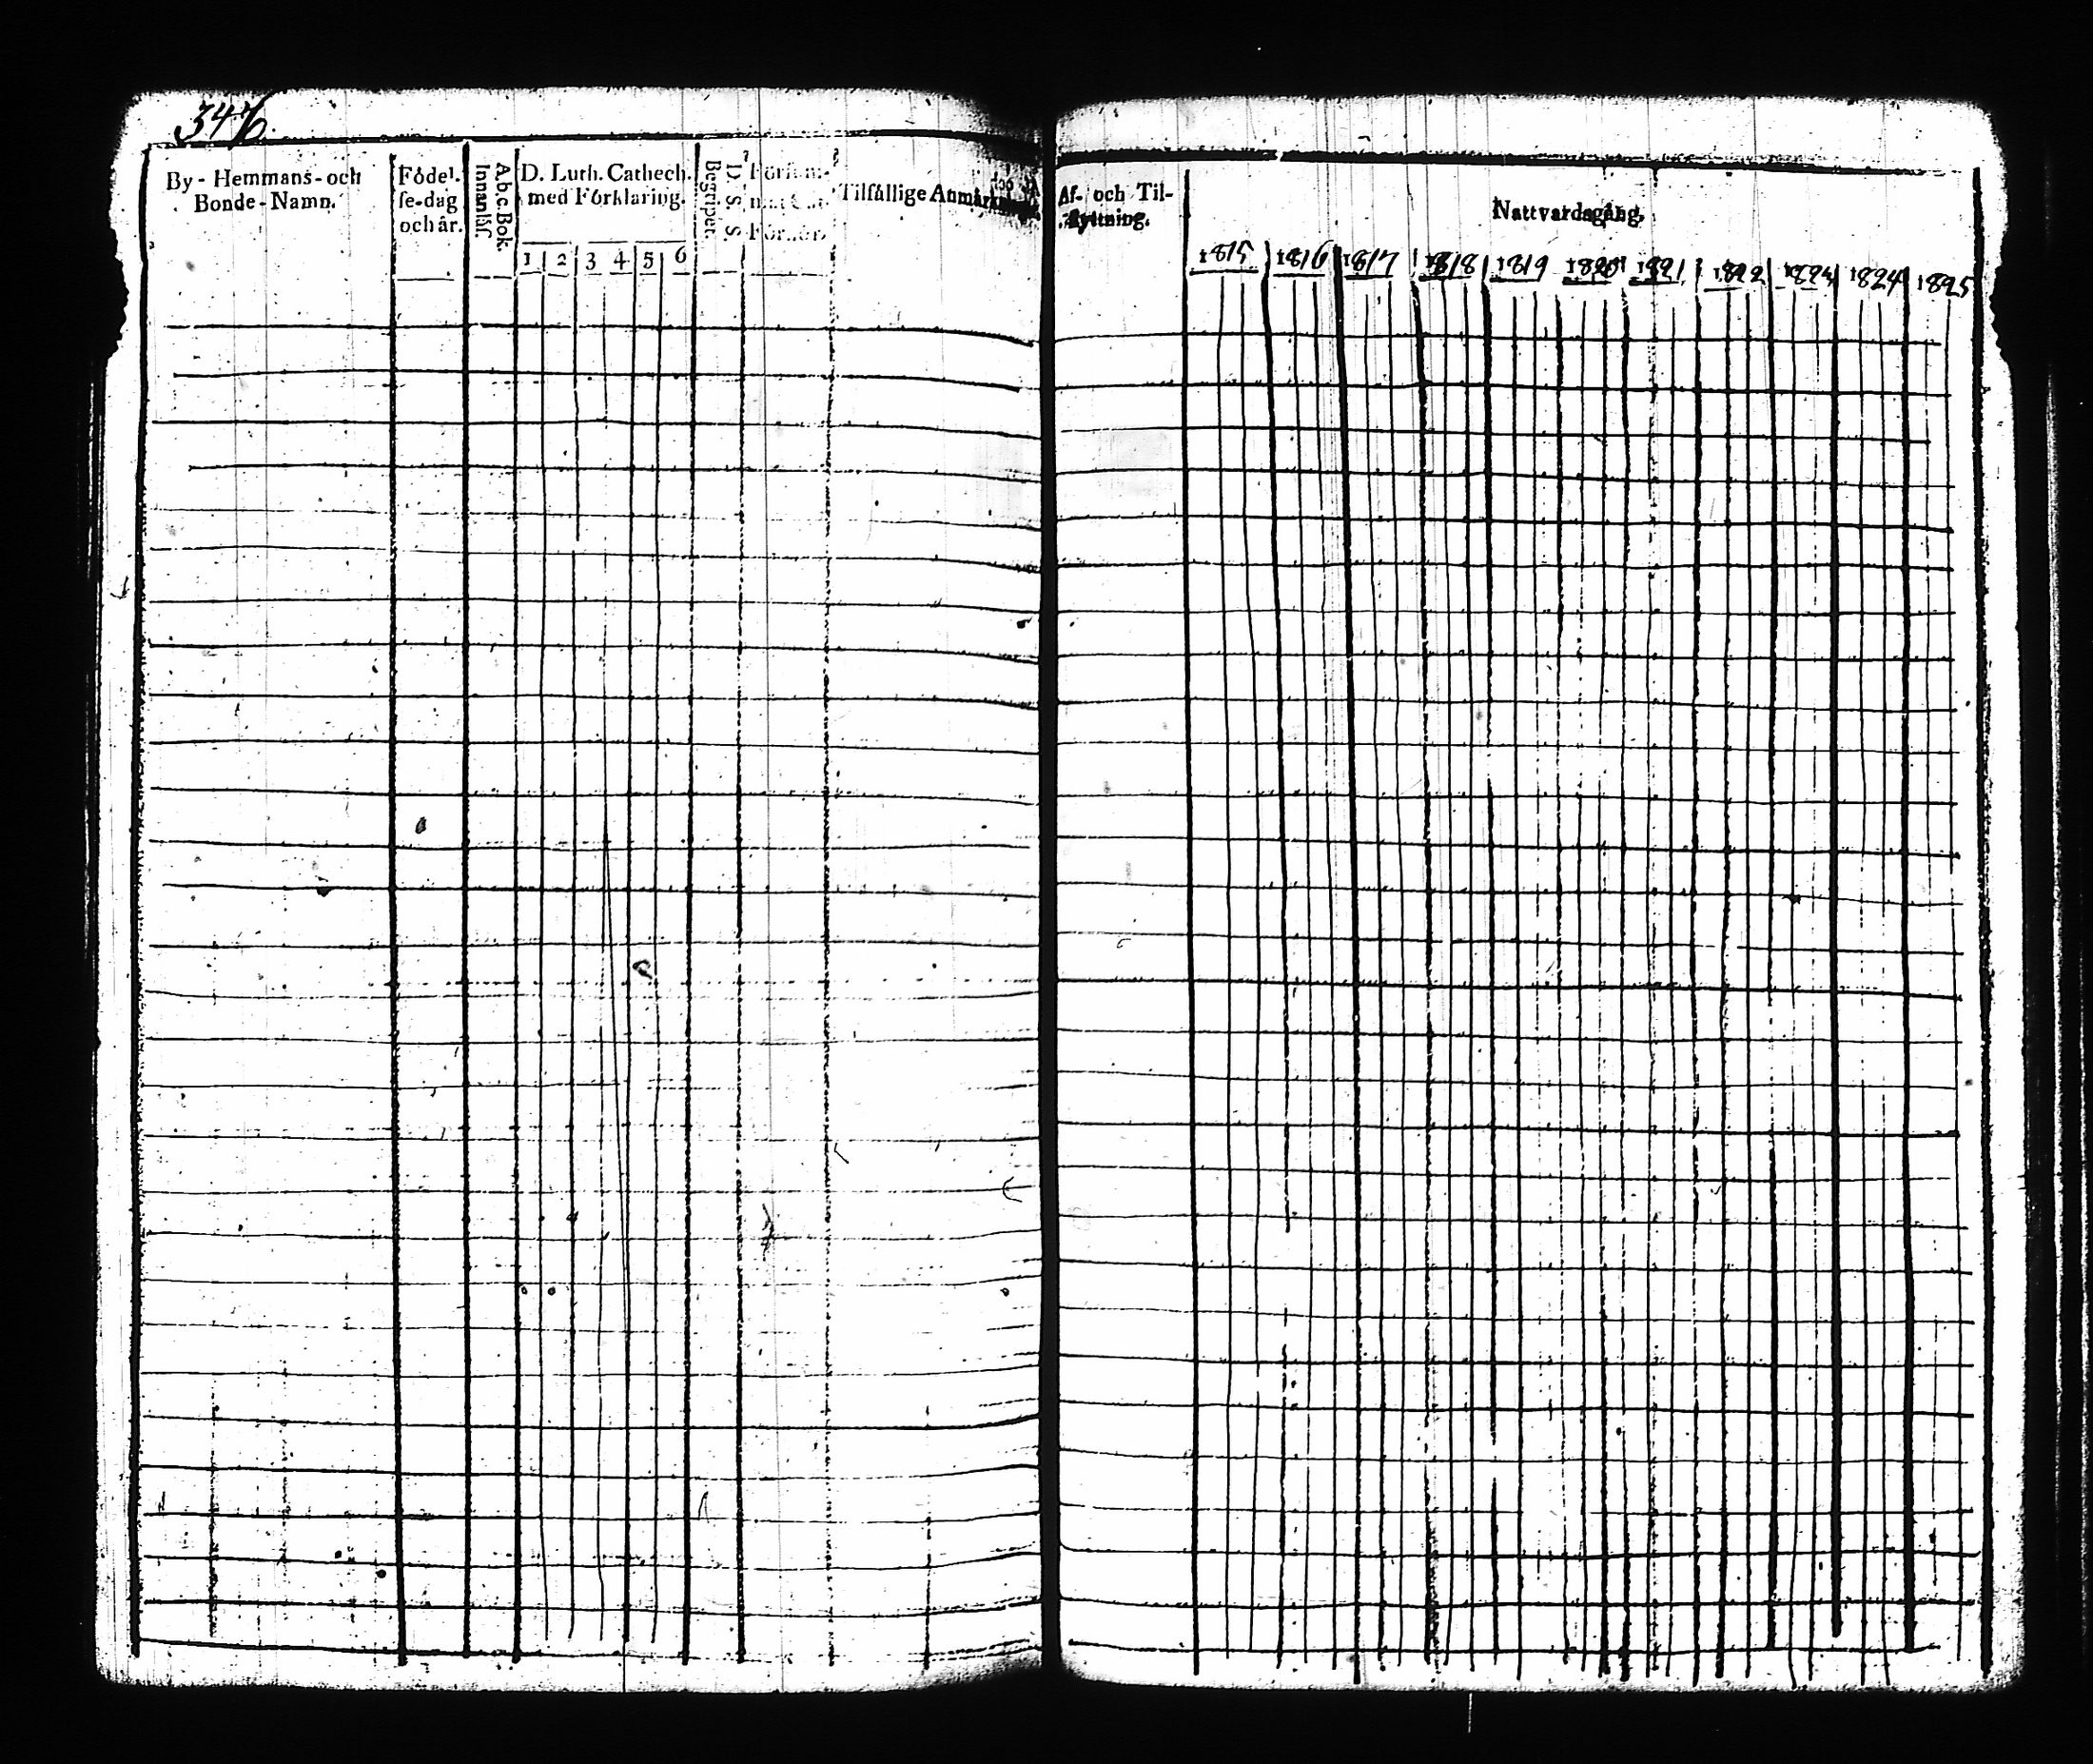 346
By-Hemmans-och
Bonde-Namn.
Födel-
se-dag
och år.
A.b.c.Bok.
Innanläs.
D. Luth. Cathech.
med Förklaring.
1 2 3 4 5 6
D. S. S.
Begriper.
Tilfällige Anmärkn
Af- och Til-
flyttning.
Nattvardsgång.
1815 1816 1817 1818 1819 1820 1821 1822 1823 1824 1825